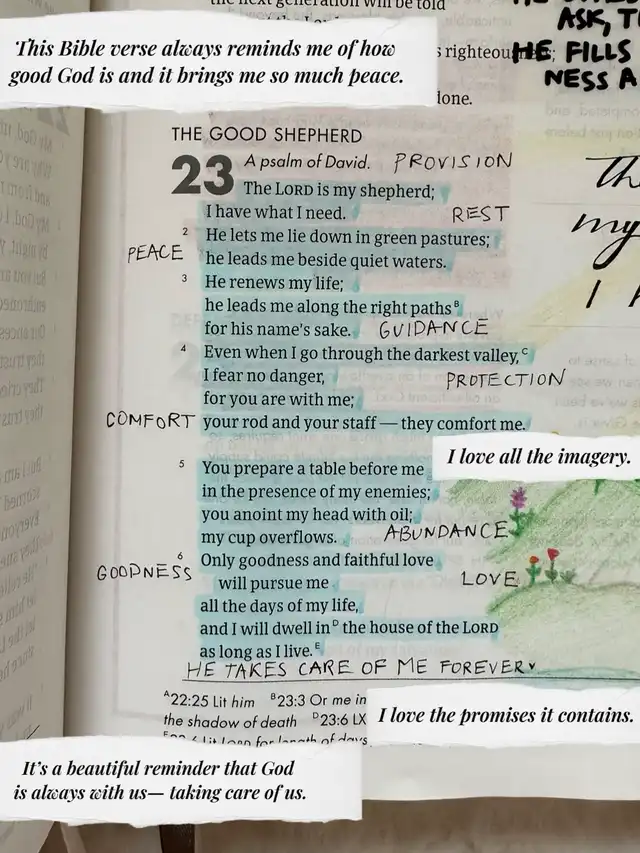 the next generation will be told
ASK, T
This Bible verse always reminds me of how
good God is and it brings me so much peace.
s righteousness;
HE FILLS
NESS A
done.
THE GOOD SHEPHERD
23 A psalm of David. PROVISION
The LORD is my shepherd;
I have what I need. REST
my
2 He lets me lie down in green pastures;
PEACE he leads me beside quiet waters.
3 He renews my life;
I
he leads me along the right paths B
for his name's sake. GUIDANCE
4 Even when I go through the darkest valley, C
I fear no danger, PROTECTION
for you are with me;
COMFORT your rod and your staff — they comfort me.
I love all the imagery.
5 You prepare a table before me
in the presence of my enemies;
you anoint my head with oil;
my cup overflows. ABUNDANCE
6 Only goodness and faithful love
GOODNESS will pursue me LOVE
all the days of my life,
and I will dwell in D the house of the LORD
as long as I live. E
HE TAKES CARE OF ME FOREVER
A 22:25 Lit him B 23:3 Or me in
the shadow of death D 23:6 LX
I love the promises it contains.
It's a beautiful reminder that God
is always with us— taking care of us.